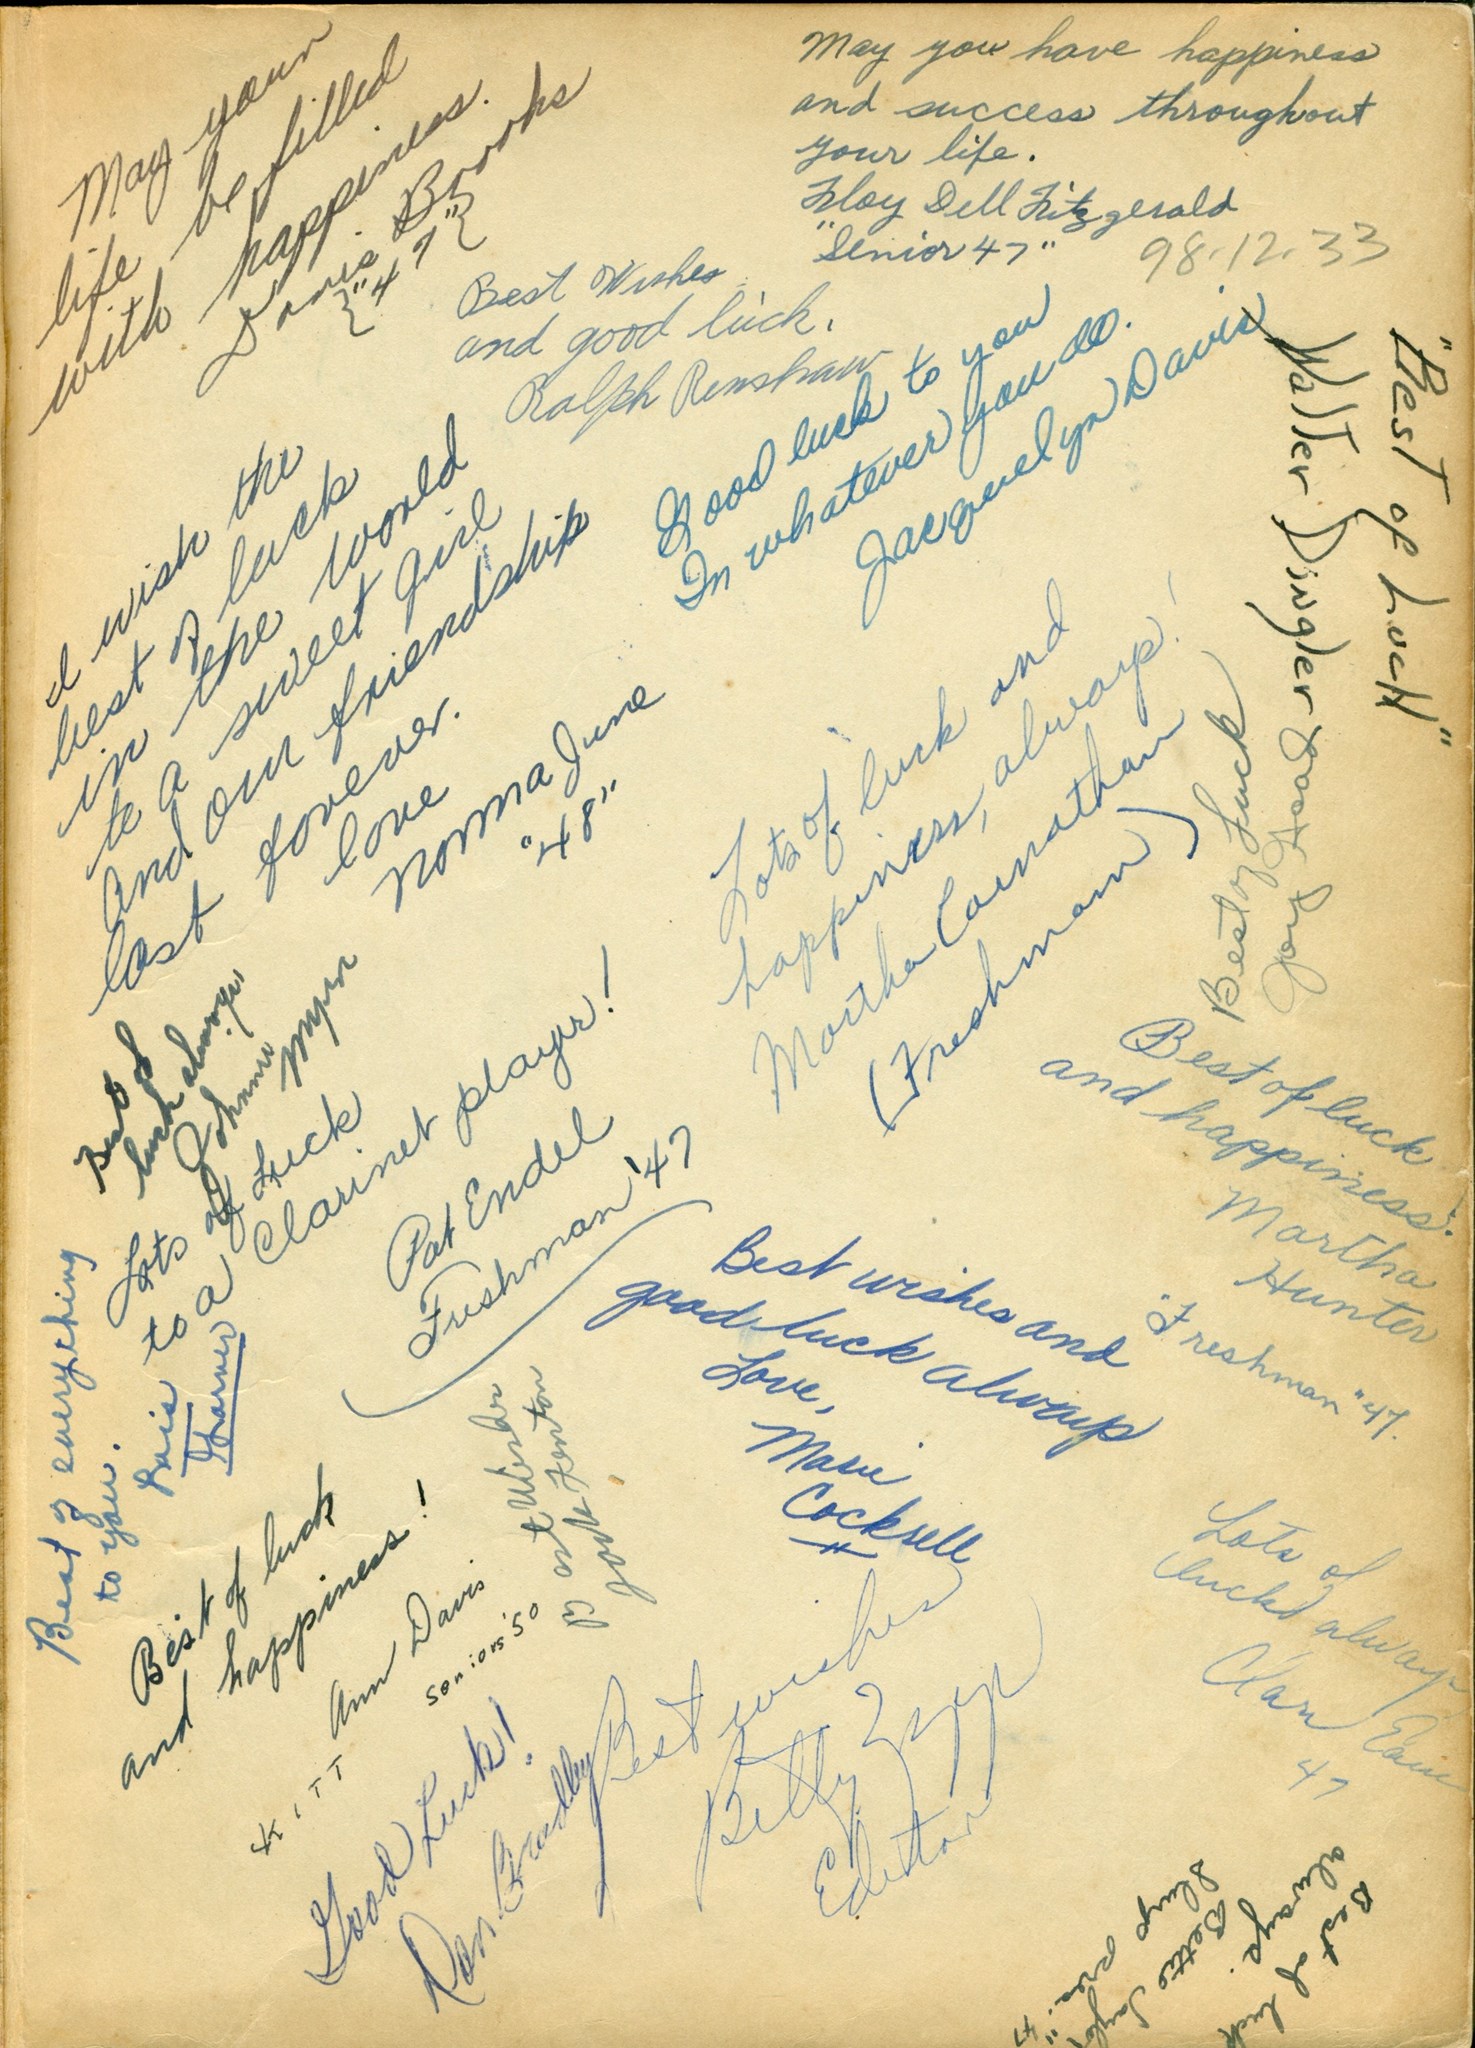 May your
life be filled
with happiness.
Doris Brooks
{"47"}
May you have happiness
and success throughout
your life.
Floy Dell Fitzgerald
"Senior 47"
98.12.33
Best Wishes
and good luck.
Ralph Renshaw
Good luck to you
In whatever you do.
Jacquelyn Davis
"Best of Luck"
Walter Dingler
I wish the
best of luck
in the world
to a sweet girl
And our friendship
last forever.
love
Norma June
"48"
Lots of luck and
happiness, always!
Martha Carnathan
(Freshman)
Best of Luck
Best of
luck always,
Johnnie Myers
Lots of Luck
to a Clarinet player!
Pat Endel
Freshman '47
Best of luck
and happiness!
Martha
Hunter
"Freshman" 47.
Best wishes and
good luck always
Love,
Marie
Cocksell
"
Best of everything
to you.
Lois
Garner
Best Wishes
Best of luck
and happiness!
Ann Davis
seniors '50
KITT
Lots of
luck always
Clara
47
Good Luck!
Don Bradley
Best wishes
Betty Zapp
Editor
Best of luck
always.
Bettie
"47